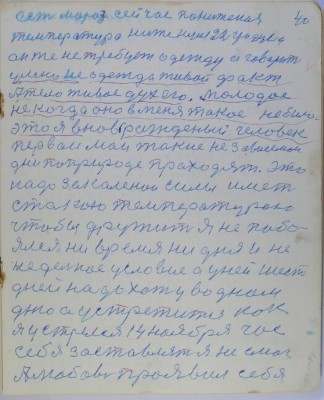 40
сеть мороз сейчас пониженая
температура ниже нуля 22 градуса
а не требует одежду а говорит
не одежда живой факт
А тело живое духего. молодое
некогда оно в меня такое небыло
это я вновь рожденый человек
первый май такие независимой
дни по природе проходят. Это
надо закаленой силы имет
с такою температурою
чтобы дружит Я не побо
ялся ни время ни дня и не
неделное условие а у ней шесть
дней надь хожу водном
дно а устретится как
я устрелся 14 ноября час
себя заставлят я не смог
А любов проявил себя